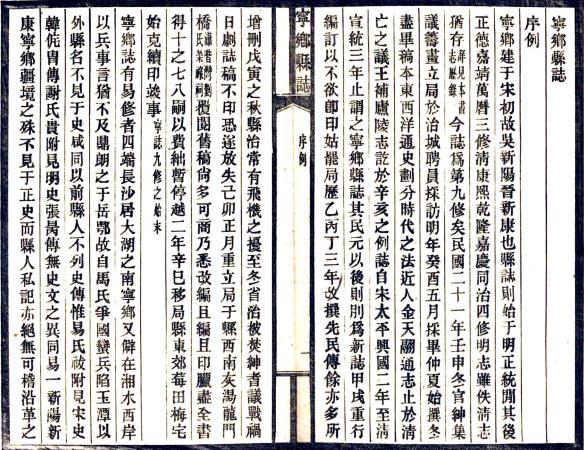 寧鄉縣誌
序例
寧鄉建于宋初故吳新陽晉新康也縣誌則始于明正統閒其後
正德嘉靖萬曆三修清康熙乾隆嘉慶同治四修明志雖佚清志
猶存詳見本書今誌爲第九修矣民國二十一年壬申冬官紳集
議籌畫立局於治城聘員採訪明年癸酉五月採畢仲夏始撰冬
盡畢稿本東西洋通史劃分時代之法近人金天翮通志止於清
亡之議王補廬陵志訖於辛亥之例誌自宋太平興國二年至清
宣統三年止謂之寧鄉縣誌其民元以後則別爲新誌甲戌重行
編訂以不欲卽印姑罷局歷乙丙丁三年改撰先民傳餘亦多所
寧鄉縣誌
序例
一
增刪戊寅之秋縣治常有飛機之擾至冬省治被焚紳耆議戰禍
日劇誌稿不印恐遂放失己卯正月重立局于縣西南灰湯龍門
橋覆閱舊稿尙多可商乃悉改編且編且印臘盡全書
得十之七八嗣以費絀暫停越二年辛巳移局縣東郊每田梅宅
始克續印竣事寧誌九修之始末
寧鄉誌有易修者四端長沙居大湖之南寧鄉又僻在湘水西岸
以兵事言猶不及鼎朗之于岳鄂故自馬氏爭國蠻兵陷玉潭以
外縣名不見于史咸同以前縣人不列史傳惟易氏祓附見宋史
韓侂胄傳謝氏貴附見明史張昺傳無史文之異同易一新陽新
康寧鄉疆境之殊不見于正史而縣人私記亦絕無可稽沿革之